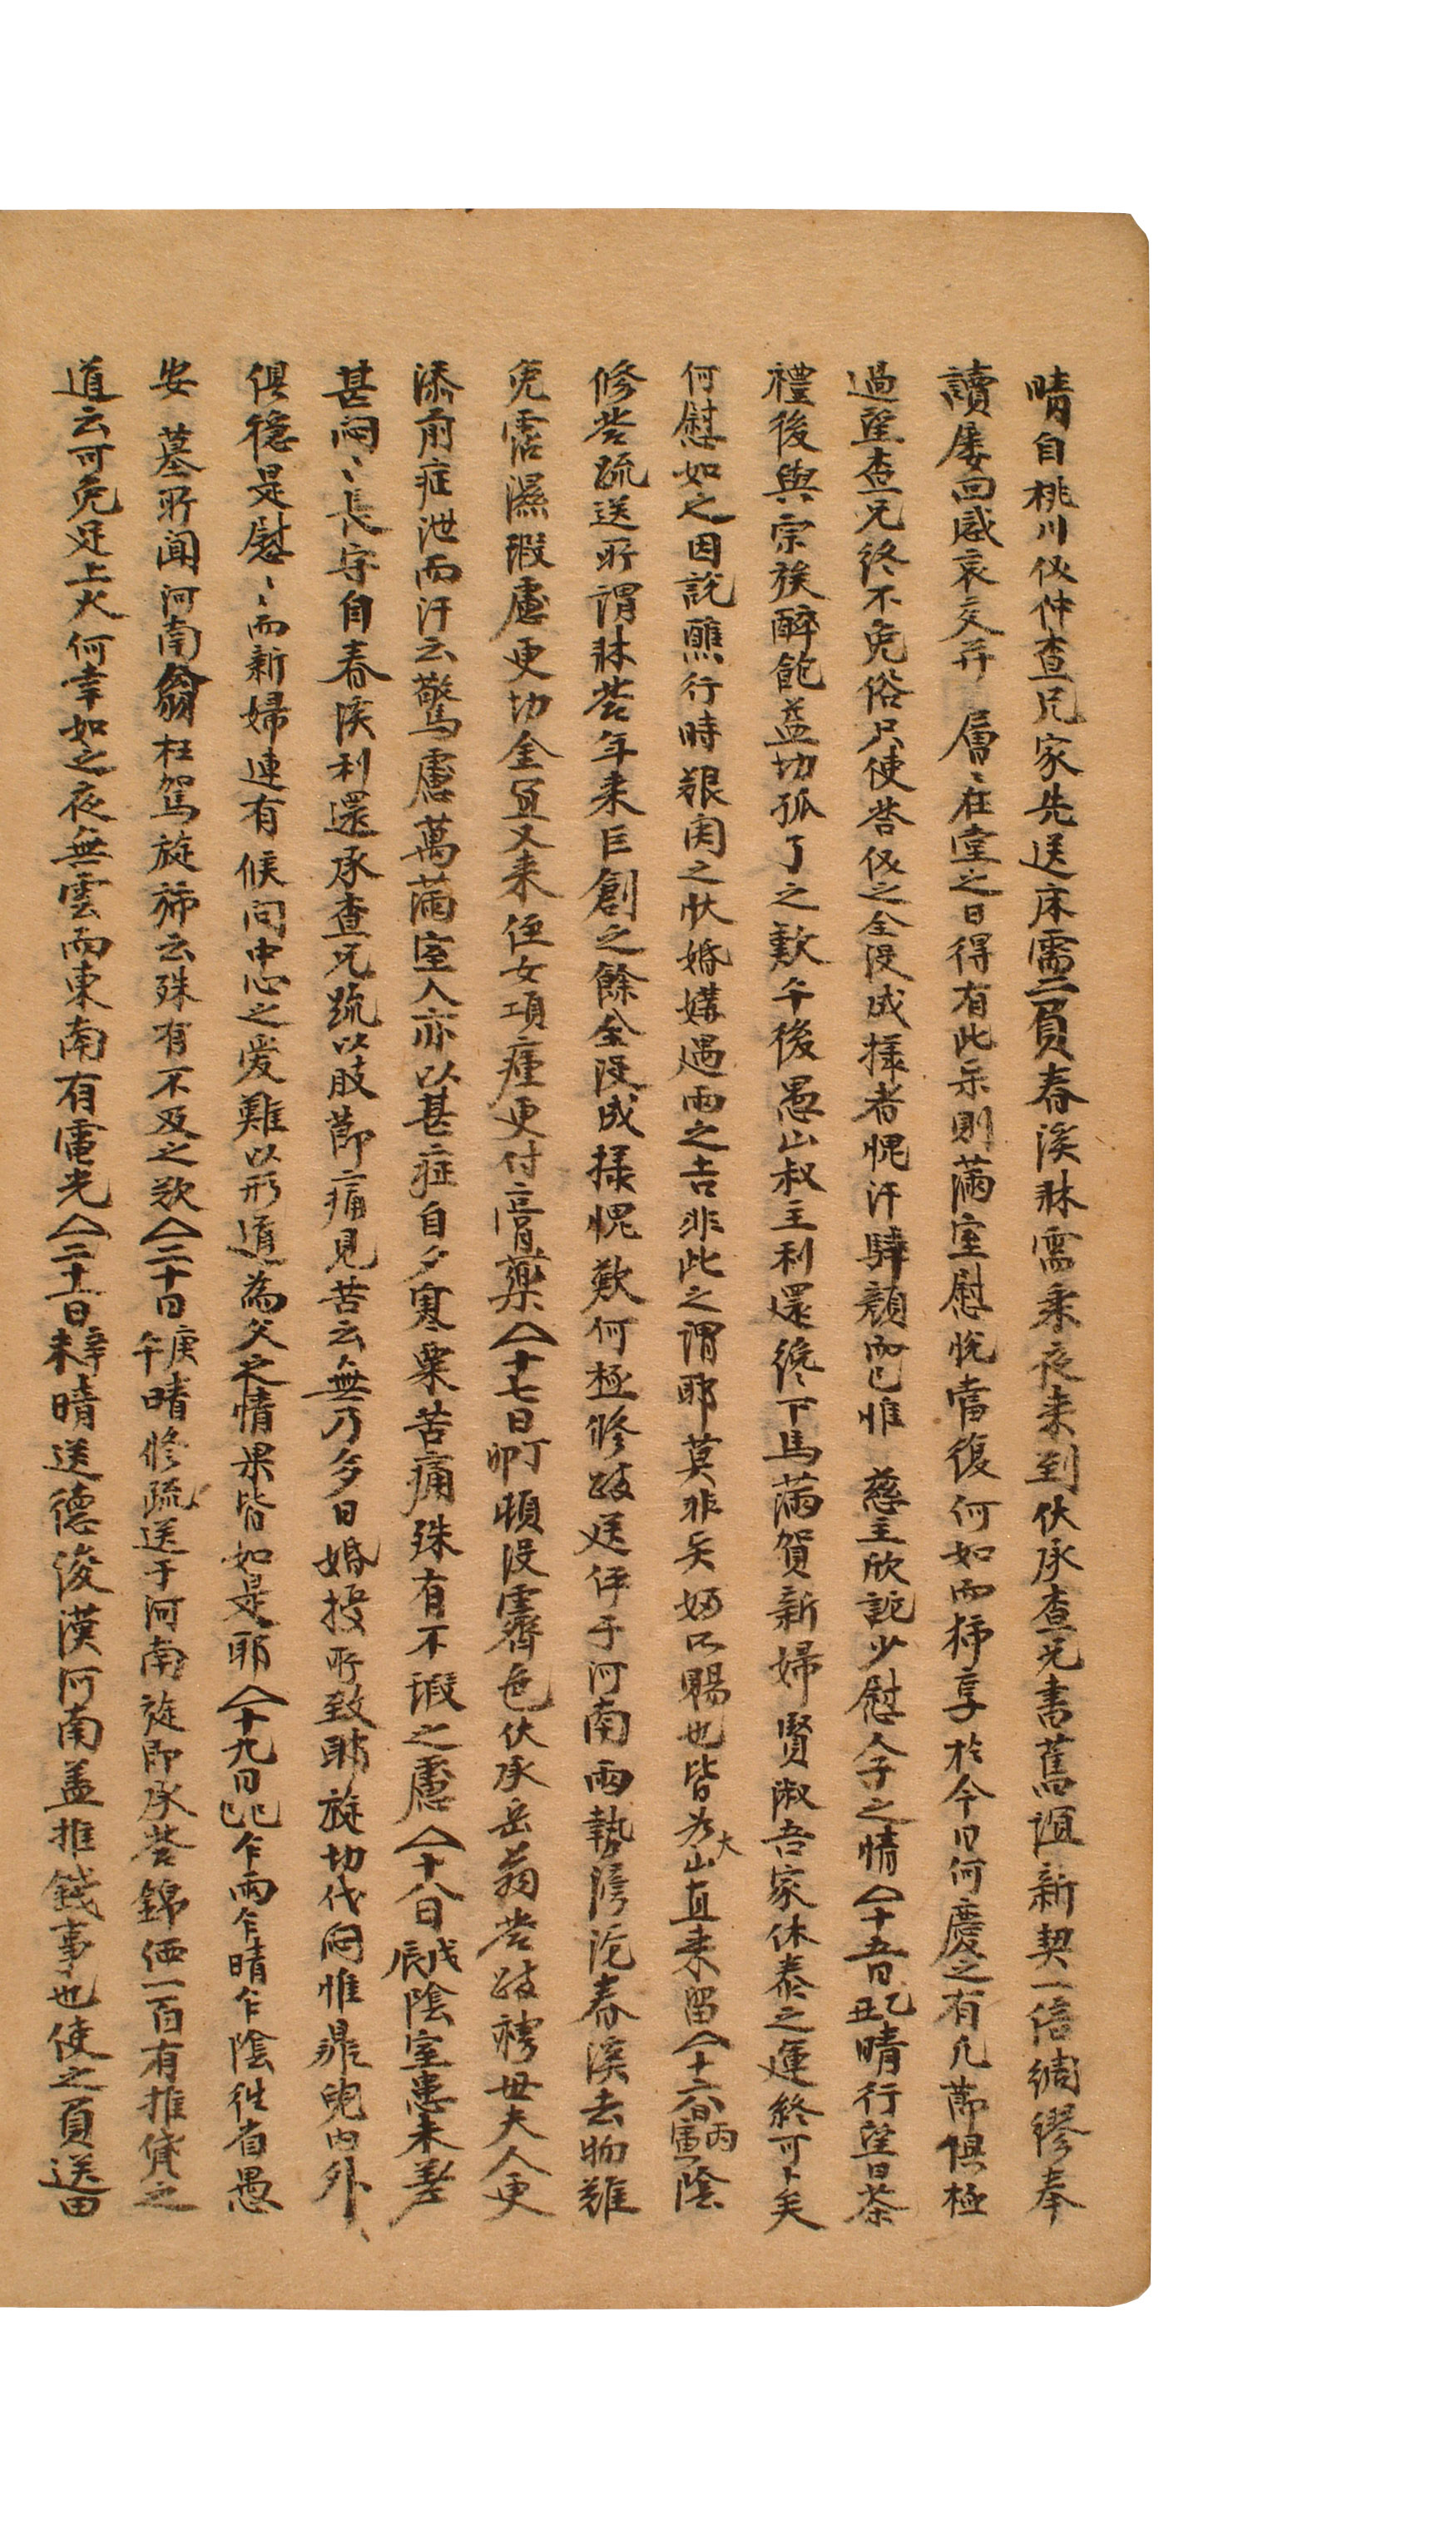 晴自桃川伋仲查兄家先送床需二員春溪牀需乘夜来到伏承查兄書舊誼新契一倍綢繆奉
讀屡回感哀交幷 層〻在堂之日得有此示則滿室慰悅當復何如而拚享於今日何慶之有凡節俱極
過望查兄終不免俗只使答伋之全没成㨾者愧汗騂顔而已惟 慈主欣詑少慰人子之情〈十五日乙丑晴行望日茶
禮後與宗族醉飽益切孤了之歎午後愚山叔主利還纔下馬滿賀新婦賢淑吾家休泰之運終可卜矣
何慰如之因說醮行時艱関之狀婚媾遇雨之吉非此之謂耶莫非矣妢只賜也皆為大山直来留〈十六日丙寅陰
修答疏送所謂牀答年来巨創之餘全没成㨾愧歎何極修𢿙送伻于河南雨勢滂沱春溪去物難
免霑濕瑕慮更切金冝又来侄女項瘇更付膏藥〈十七日丁卯頓没霽色伏承岳翁答𢿙聘母夫人更
添前症泄而汗云驚慮萬萬室人亦以甚症自夕寒粟苦痛殊有不瑕之慮〈十八日戊辰陰室患未差
甚悶〻長守自春溪利還承查兄疏以肢節痛見苦云無乃多日婚擾所致耶旋切代悶惟鼎兒内外
俱穩是慰〻而新婦連有候問中心之愛難以形道為父之情果皆如是耶〈十九日己巳乍雨乍晴乍陰徃省愚
安 墓所聞河南翁枉駕旋旆云殊有不及之歎〈二十日庚午晴修疏送于河南旋即承答錦価一百有推貸之
道云可免足上火何幸如之夜無雲而東南有電光〈二十一日辛未晴送德浚漢河南盖推錢事也使之負送田